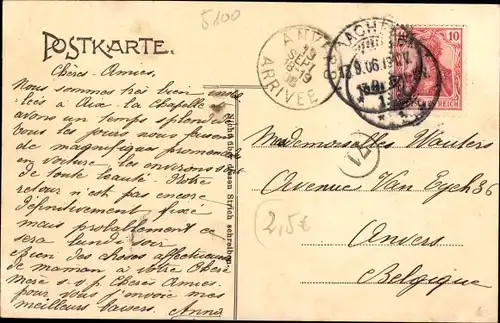 5100
POSTKARTE.
Chères Amies.
Nous sommes très bien
à Aix-la Chapelle
avons un temps splendide
tous les jours nous faisons
de magnifiques promenades
en voiture, les environs sont
de toute beauté. Notre
retour n'est pas encore
définitivement fixé
mais probablement ce
sera lundi soir
bien des choses affectueuses
de maman à votre chère
Mère s.v.p. Chères Amies.
pour vous j'envoie mes
meilleurs baisers. Anna
Nicht über diesen Strich schreiben.
ANVERS
13 SEPT
ARRIVEE
AACHEN
13.9.06
1
10
DEUTSCHES REICH
Mademoiselles Wauters
Avenue Van Eyck 36
Anvers
Belgique
71
2,5€